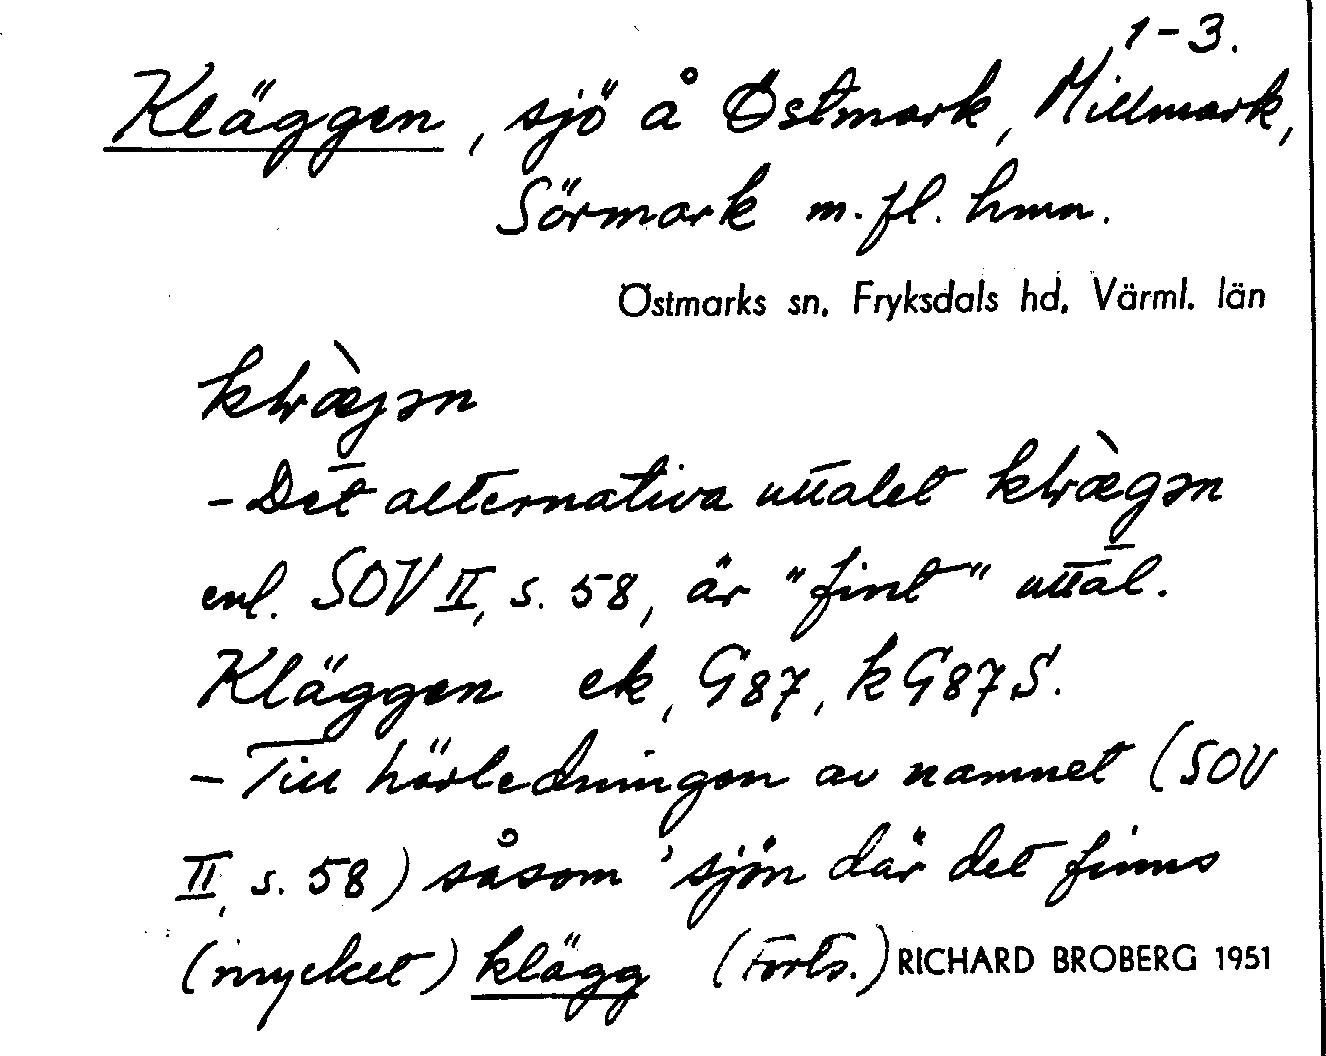 1-3.
Kläggen, sjö å Östmark, Millmark,
Sörmark m.fl. hmn.
Östmarks sn. Fryksdals hd. Värml. län
- Det alternativa uttalet
enl. SOV II, s. 58, är "fint" uttal.
Kläggen ek, G87, kG87S.
- Till härledningen av namnet (SOV
II, s. 58) såsom 'sjön där det finns
(mycket) klägg (Forts.) RICHARD BROBERG 1951